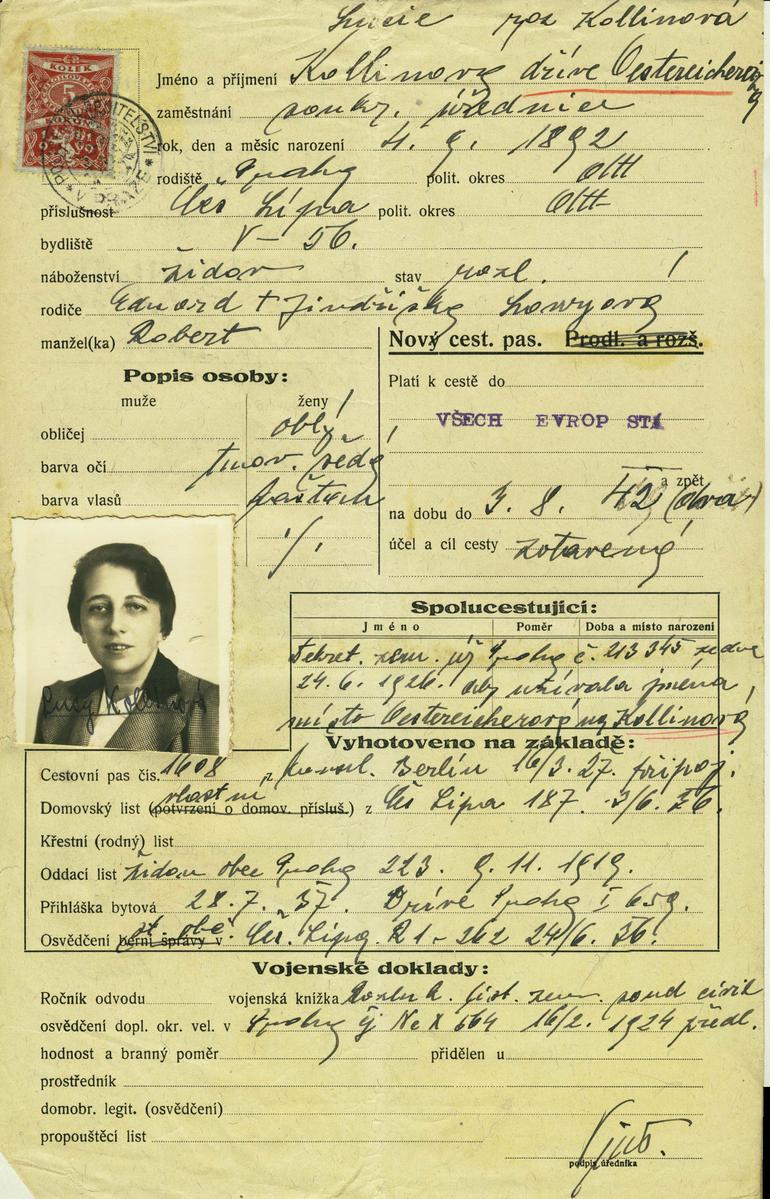 Lucie roz Kollinová
Jméno a příjmení Kollinová dříve Oestereicherová
zaměstnání soukr. úřednice
rok, den a měsíc narození 4. 9. 1892
rodiště Praha polit. okres
příslušnost Čes Lípa polit. okres
bydliště V – 56.
náboženství židov stav rozl.
rodiče Eduard + Jindřiška
manžel(ka) Robert
Nový cest. pas. Prodl. a rozš.
Popis osoby:
muže ženy
obličej oblý
barva očí tmov. šedé
barva vlasů kaštan
Platí k cestě do
VŠECH EVROP STÁ
a zpět
na dobu do 3. 8. 42
účel a cíl cesty zotavená
Lucy Kollinová
Spolucestující:
Jméno Poměr Doba a místo narození
Dekret. zem. úř Praha č. 213345 ze dne
24. 6. 1926. aby užívala jména
místo Oestereicherová na Kollinová
Vyhotoveno na základě:
Cestovní pas čís. 1608 z konsul. Berlín 16/3. 27. připoj.
vlastní
Domovský list (potvrzení o domov. přísluš.) z Čes Lípa 187. 3/6. 36.
Křestní (rodný) list
Oddací list židov obec Praha 223. 9. 11. 1919.
Přihláška bytová 28. 7. 37. Dříve Praha I 659.
Osvědčení berní správy v Čes. Lípa. 24/6. 36.
Vojenské doklady:
Ročník odvodu vojenská knížka zem. soud civil
osvědčení dopl. okr. vel. v Praha 16/2. 1924 předl.
hodnost a branný poměr přidělen u
prostředník
domobr. legit. (osvědčení)
propouštěcí list
podpis úředníka